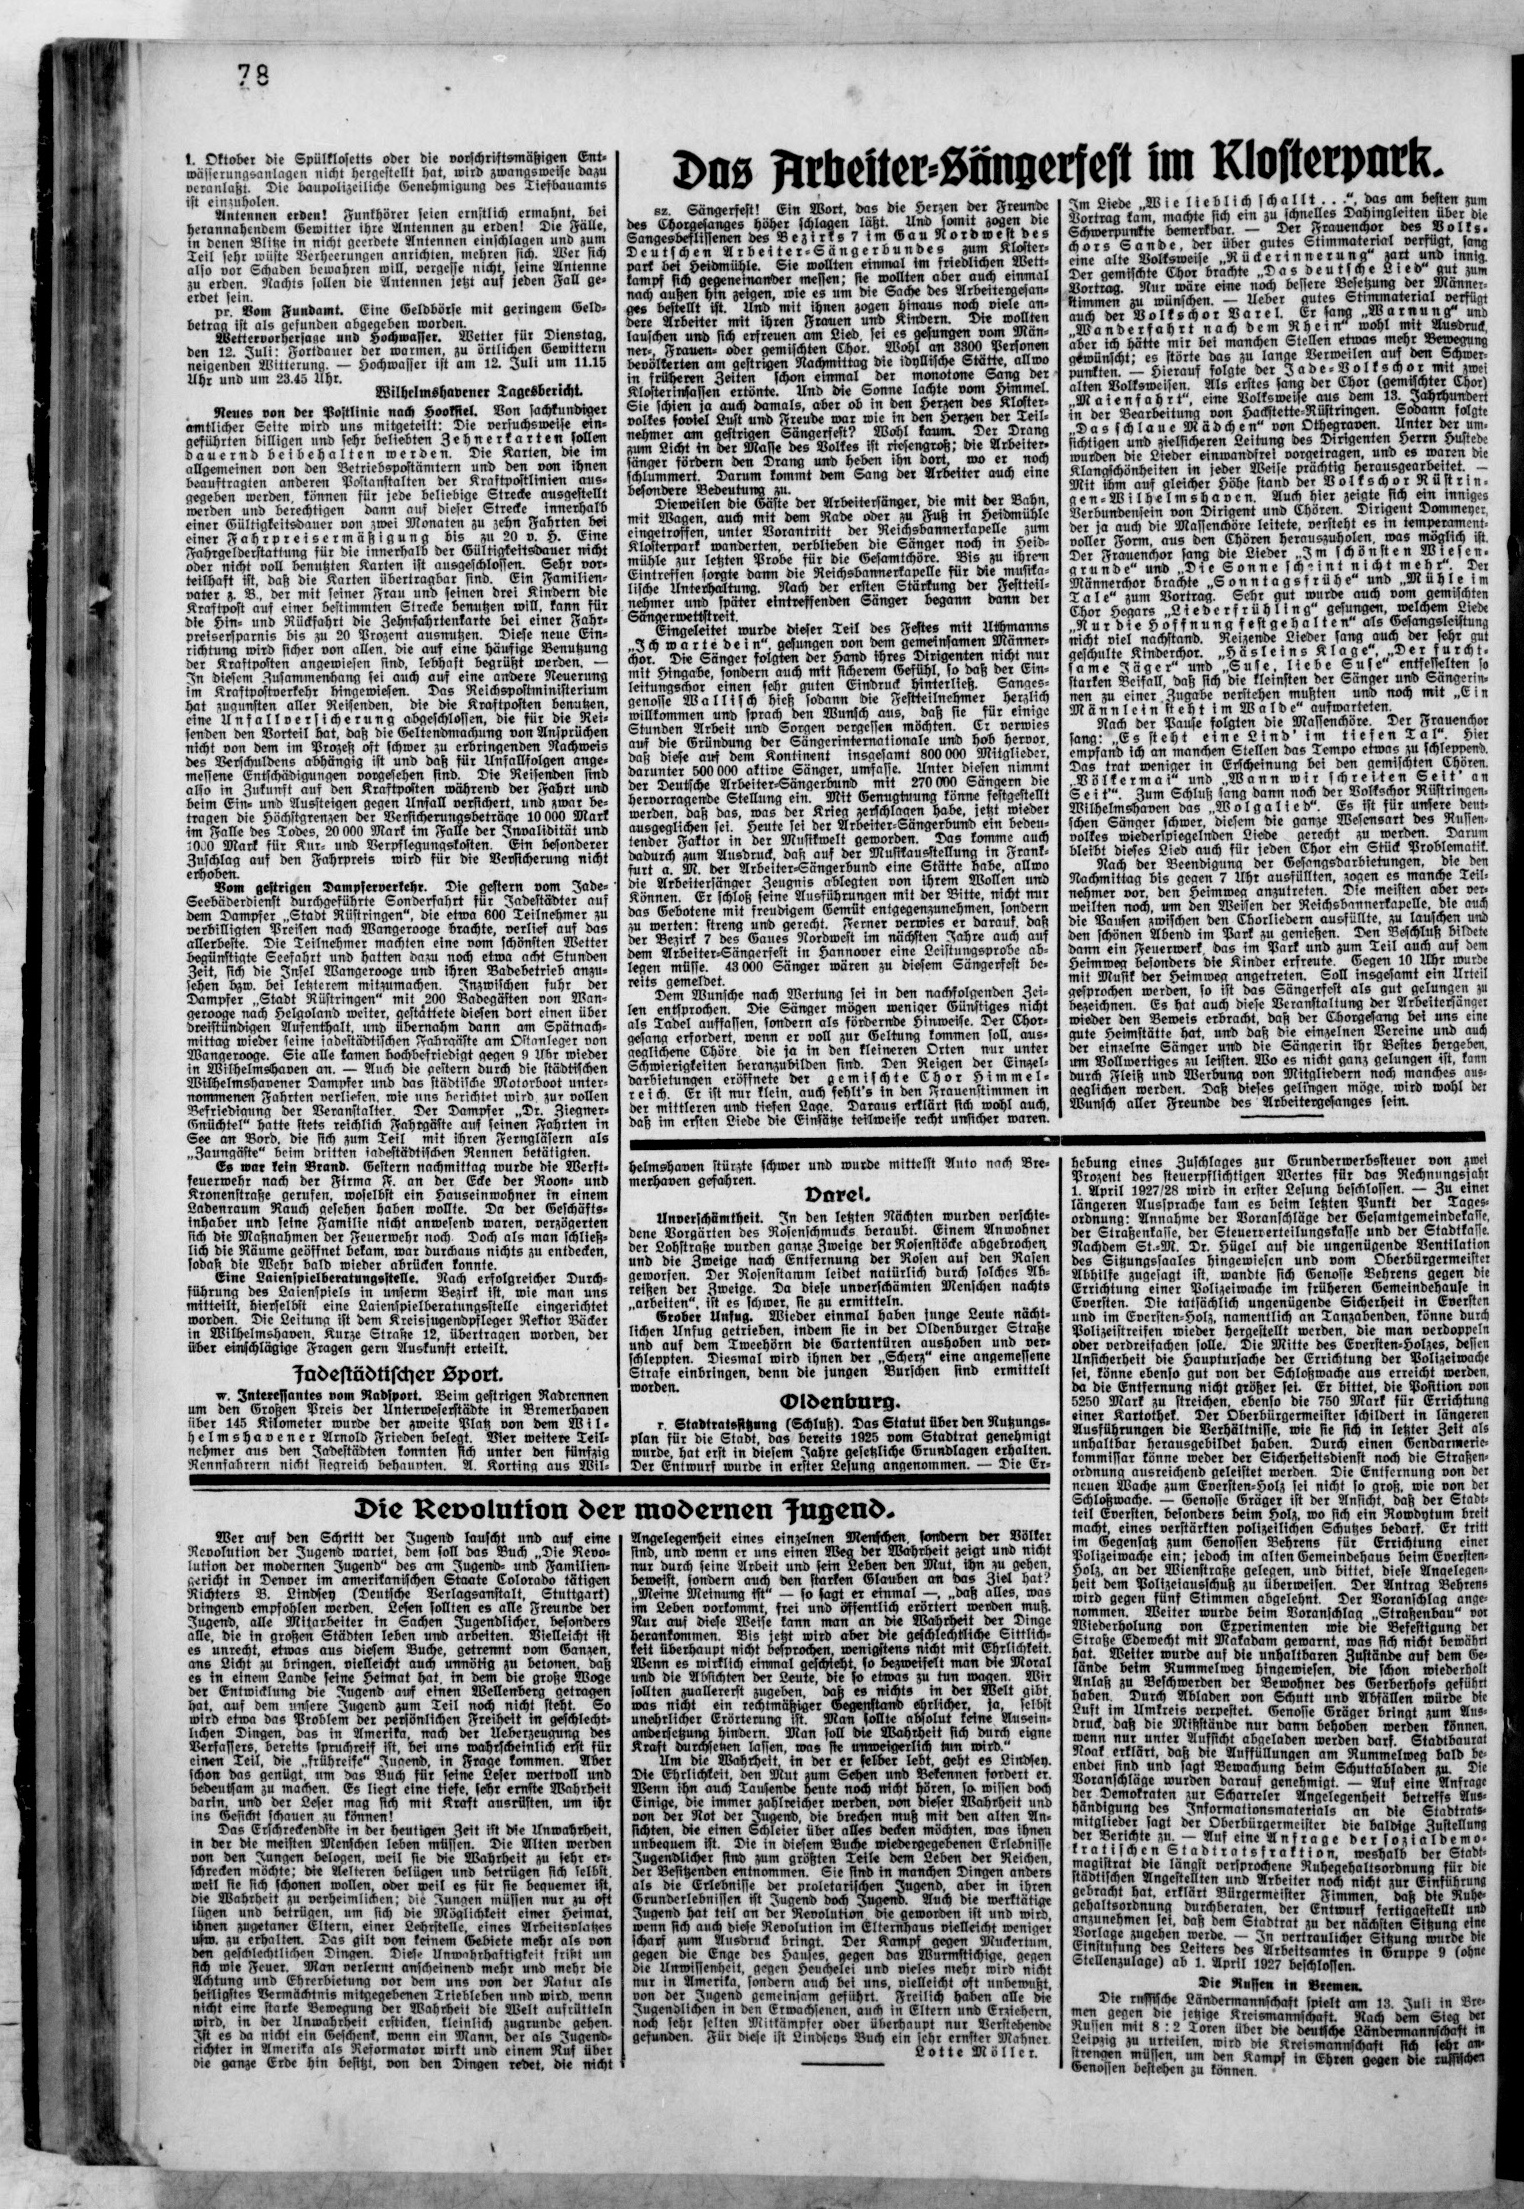 78
1. Oktober die Spülklosetts oder die vorschriftsmäßigen Ent-
wässerungsanlagen nicht hergestellt hat, wird zwangsweise dazu
veranlaßt. Die baupolizeiliche Genehmigung des Tiefbauamts
ist einzuholen.
Antennen erden! Funkhörer seien ernstlich ermahnt, bei
herannahendem Gewitter ihre Antennen zu erden! Die Fälle,
in denen Blitze in nicht geerdete Antennen einschlagen und zum
Teil sehr wüste Verheerungen anrichten, mehren sich. Wer sich
also vor Schaden bewahren will, vergesse nicht, seine Antenne
zu erden. Nachts sollen die Antennen jetzt auf jeden Fall ge-
erdet sein.
pr. Vom Fundamt. Eine Geldbörse mit geringem Geld-
betrag ist als gefunden abgegeben worden.
Wettervorhersage und Hochwasser. Wetter für Dienstag,
den 12. Juli: Fortdauer der warmen, zu örtlichen Gewittern
neigenden Witterung. — Hochwasser ist am 12. Juli um 11.15
Uhr und um 23.45 Uhr.
Wilhelmshavener Tagesbericht.
Neues von der Postlinie nach Hooksiel. Von sachkundiger
amtlicher Seite wird uns mitgeteilt: Die versuchsweise ein-
geführten billigen und sehr beliebten Zehnerkarten sollen
dauernd beibehalten werden. Die Karten, die im
allgemeinen von den Betriebspostämtern und den von ihnen
beauftragten anderen Postanstalten der Kraftpostlinien aus-
gegeben werden, können für jede beliebige Strecke ausgestellt
werden und berechtigen dann auf dieser Strecke innerhalb
einer Gültigkeitsdauer von zwei Monaten zu zehn Fahrten bei
einer Fahrpreisermäßigung bis zu 20 v. H. Eine
Fahrgelderstattung für die innerhalb der Gültigkeitsdauer nicht
oder nicht voll benutzten Karten ist ausgeschlossen. Sehr vor-
teilhaft ist, daß die Karten übertragbar sind. Ein Familien-
vater z. B., der mit seiner Frau und seinen drei Kindern die
Kraftpost auf einer bestimmten Strecke benutzen will, kann für
die Hin- und Rückfahrt die Zehnfahrtenkarte bei einer Fahr-
preisersparnis bis zu 20 Prozent ausnutzen. Diese neue Ein-
richtung wird sicher von allen, die auf eine häufige Benutzung
der Kraftposten angewiesen sind, lebhaft begrüßt werden. —
In diesem Zusammenhang sei auch auf eine andere Neuerung
im Kraftpostverkehr hingewiesen. Das Reichspostministerium
hat zugunsten aller Reisenden, die die Kraftposten benutzen,
eine Unfallversicherung abgeschlossen, die für die Rei-
senden den Vorteil hat, daß die Geltendmachung von Ansprüchen
nicht von dem im Prozeß oft schwer zu erbringenden Nachweis
des Verschuldens abhängig ist und daß für Unfallfolgen ange-
messene Entschädigungen vorgesehen sind. Die Reisenden sind
also in Zukunft auf den Kraftposten während der Fahrt und
beim Ein- und Aussteigen gegen Unfall versichert, und zwar be-
tragen die Höchstgrenzen der Versicherungsbeträge 10 000 Mark
im Falle des Todes, 20 000 Mark im Falle der Invalidität und
1000 Mark für Kur- und Verpflegungskosten. Ein besonderer
Zuschlag auf den Fahrpreis wird für die Versicherung nicht
erhoben.
Vom gestrigen Dampferverkehr. Die gestern vom Jade-
Seebäderdienst durchgeführte Sonderfahrt für Jadestädter auf
dem Dampfer „Stadt Rüstringen“, die etwa 600 Teilnehmer zu
verbilligten Preisen nach Wangerooge brachte, verlief auf das
allerbeste. Die Teilnehmer machten eine vom schönsten Wetter
begünstigte Seefahrt und hatten dazu noch etwa acht Stunden
Zeit, sich die Insel Wangerooge und ihren Badebetrieb anzu-
sehen bzw. bei letzterem mitzumachen. Inzwischen fuhr der
Dampfer „Stadt Rüstringen“ mit 200 Badegästen von Wan-
gerooge nach Helgoland weiter, gestattete diesen dort einen über
dreistündigen Aufenthalt, und übernahm dann am Spätnach-
mittag wieder seine jadestädtischen Fahrgäste am Ostanleger von
Wangerooge. Sie alle kamen hochbefriedigt gegen 9 Uhr wieder
in Wilhelmshaven an. — Auch die gestern durch die städtischen
Wilhelmshavener Dampfer und das städtische Motorboot unter-
nommenen Fahrten verliefen, wie uns berichtet wird, zur vollen
Befriedigung der Veranstalter. Der Dampfer „Dr. Ziegner-
Gnüchtel“ hatte stets reichlich Fahrgäste auf seinen Fahrten in
See an Bord, die sich zum Teil mit ihren Ferngläsern als
„Zaungäste“ beim dritten jadestädtischen Rennen betätigten.
Es war kein Brand. Gestern nachmittag wurde die Werft-
feuerwehr nach der Firma F. an der Ecke der Roon- und
Kronenstraße gerufen, woselbst ein Hauseinwohner in einem
Ladenraum Rauch gesehen haben wollte. Da der Geschäfts-
inhaber und seine Familie nicht anwesend waren, verzögerten
sich die Maßnahmen der Feuerwehr noch. Doch als man schließ-
lich die Räume geöffnet bekam, war durchaus nichts zu entdecken,
sodaß die Wehr bald wieder abrücken konnte.
Eine Laienspielberatungsstelle. Nach erfolgreicher Durch-
führung des Laienspiels in unserm Bezirk ist, wie man uns
mitteilt, hierselbst eine Laienspielberatungsstelle eingerichtet
worden. Die Leitung ist dem Kreisjugendpfleger Rektor Bäcker
in Wilhelmshaven, Kurze Straße 12, übertragen worden, der
über einschlägige Fragen gern Auskunft erteilt.
Jadestädtischer Sport.
w. Interessantes vom Radsport. Beim gestrigen Radrennen
um den Großen Preis der Unterweserstädte in Bremerhaven
über 145 Kilometer wurde der zweite Platz von dem Wil-
helmshavener Arnold Frieden belegt. Vier weitere Teil-
nehmer aus den Jadestädten konnten sich unter den fünfzig
Rennfahrern nicht siegreich behaupten. A. Korting aus Wil-
Das Arbeiter-Sängerfest im Klosterpark.
sz. Sängerfest! Ein Wort, das die Herzen der Freunde
des Chorgesanges höher schlagen läßt. Und somit zogen die
Sangesbeflissenen des Bezirks 7 im Gau Nordwest des
Deutschen Arbeiter-Sängerbundes zum Kloster-
park bei Heidmühle. Sie wollten einmal im friedlichen Wett-
kampf sich gegeneinander messen; sie wollten aber auch einmal
nach außen hin zeigen, wie es um die Sache des Arbeitergesan-
ges bestellt ist. Und mit ihnen zogen hinaus noch viele an-
dere Arbeiter mit ihren Frauen und Kindern. Die wollten
lauschen und sich erfreuen am Lied, sei es gesungen vom Män-
ner-, Frauen- oder gemischten Chor. Wohl an 3300 Personen
bevölkerten am gestrigen Nachmittag die idyllische Stätte, allwo
in früheren Zeiten schon einmal der monotone Sang der
Klosterinsassen ertönte. Und die Sonne lachte vom Himmel.
Sie schien ja auch damals, aber ob in den Herzen des Kloster-
volkes soviel Lust und Freude war wie in den Herzen der Teil-
nehmer am gestrigen Sängerfest? Wohl kaum. Der Drang
zum Licht in der Masse des Volkes ist riesengroß; die Arbeiter-
sänger fördern den Drang und heben ihn dort, wo er noch
schlummert. Darum kommt dem Sang der Arbeiter auch eine
besondere Bedeutung zu.
Dieweilen die Gäste der Arbeitersänger, die mit der Bahn,
mit Wagen, auch mit dem Rade oder zu Fuß in Heidmühle
eingetroffen, unter Vorantritt der Reichsbannerkapelle zum
Klosterpark wanderten, verblieben die Sänger noch in Heid-
mühle zur letzten Probe für die Gesamtchöre. Bis zu ihrem
Eintreffen sorgte dann die Reichsbannerkapelle für die musika-
lische Unterhaltung. Nach der ersten Stärkung der Festteil-
nehmer und später eintreffenden Sänger begann dann der
Sängerwettstreit.
Eingeleitet wurde dieser Teil des Festes mit Uthmanns
„Ich warte dein“, gesungen von dem gemeinsamen Männer-
chor. Die Sänger folgten der Hand ihres Dirigenten nicht nur
mit Hingabe, sondern auch mit sicherem Gefühl, so daß der Ein-
leitungschor einen sehr guten Eindruck hinterließ. Sanges-
genosse Wallisch hieß sodann die Festteilnehmer herzlich
willkommen und sprach den Wunsch aus, daß sie für einige
Stunden Arbeit und Sorgen vergessen möchten. Er verwies
auf die Gründung der Sängerinternationale und hob hervor,
daß diese auf dem Kontinent insgesamt 800 000 Mitglieder,
darunter 500 000 aktive Sänger, umfasse. Unter diesen nimmt
der Deutsche Arbeiter-Sängerbund mit 270 000 Sängern die
hervorragende Stellung ein. Mit Genugtuung könne festgestellt
werden, daß das, was der Krieg zerschlagen habe, jetzt wieder
ausgeglichen sei. Heute sei der Arbeiter-Sängerbund ein bedeu-
tender Faktor in der Musikwelt geworden. Das komme auch
dadurch zum Ausdruck, daß auf der Musikausstellung in Frank-
furt a. M. der Arbeiter-Sängerbund eine Stätte habe, allwo
die Arbeitersänger Zeugnis ablegten von ihrem Wollen und
Können. Er schloß seine Ausführungen mit der Bitte, nicht nur
das Gebotene mit freudigem Gemüt entgegenzunehmen, sondern
zu werten: streng und gerecht. Ferner verwies er darauf, daß
der Bezirk 7 des Gaues Nordwest im nächsten Jahre auch auf
dem Arbeiter-Sängerfest in Hannover eine Leistungsprobe ab-
legen müsse. 43 000 Sänger wären zu diesem Sängerfest be-
reits gemeldet.
Dem Wunsche nach Wertung sei in den nachfolgenden Zei-
len entsprochen. Die Sänger mögen weniger Günstiges nicht
als Tadel auffassen, sondern als fördernde Hinweise. Der Chor-
gesang erfordert, wenn er voll zur Geltung kommen soll, aus-
geglichene Chöre, die ja in den kleineren Orten nur unter
Schwierigkeiten heranzubilden sind. Den Reigen der Einzel-
darbietungen eröffnete der gemischte Chor Himmel-
reich. Er ist nur klein, auch fehlt's in den Frauenstimmen in
der mittleren und tiefen Lage. Daraus erklärt sich wohl auch,
daß im ersten Liede die Einsätze teilweise recht unsicher waren.
Im Liede „Wie lieblich schallt . . .“, das am besten zum
Vortrag kam, machte sich ein zu schnelles Dahingleiten über die
Schwerpunkte bemerkbar. — Der Frauenchor des Volks-
chors Sande, der über gutes Stimmaterial verfügt, sang
eine alte Volksweise „Rückerinnerung“ zart und innig.
Der gemischte Chor brachte „Das deutsche Lied“ gut zum
Vortrag. Nur wäre eine noch bessere Besetzung der Männer-
stimmen zu wünschen. — Ueber gutes Stimmaterial verfügt
auch der Volkschor Varel. Er sang „Warnung“ und
„Wanderfahrt nach dem Rhein“ wohl mit Ausdruck,
aber ich hätte mir bei manchen Stellen etwas mehr Bewegung
gewünscht; es störte das zu lange Verweilen auf den Schwer-
punkten. — Hierauf folgte der Jade-Volkschor mit zwei
alten Volksweisen. Als erstes sang der Chor (gemischter Chor)
„Maienfahrt“, eine Volksweise aus dem 13. Jahrhundert
in der Bearbeitung von Hackstette-Rüstringen. Sodann folgte
„Das schlaue Mädchen“ von Othegraven. Unter der um-
sichtigen und zielsicheren Leitung des Dirigenten Herrn Hustede
wurden die Lieder einwandfrei vorgetragen, und es waren die
Klangschönheiten in jeder Weise prächtig herausgearbeitet. —
Mit ihm auf gleicher Höhe stand der Volkschor Rüstrin-
gen-Wilhelmshaven. Auch hier zeigte sich ein inniges
Verbundensein von Dirigent und Chören. Dirigent Dommeyer,
der ja auch die Massenchöre leitete, versteht es in temperament-
voller Form, aus den Chören herauszuholen, was möglich ist.
Der Frauenchor sang die Lieder „Im schönsten Wiesen-
grunde“ und „Die Sonne scheint nicht mehr“. Der
Männerchor brachte „Sonntagsfrühe“ und „Mühle im
Tale“ zum Vortrag. Sehr gut wurde auch vom gemischten
Chor Hegars „Liederfrühling“ gesungen, welchem Liede
„Nur die Hoffnung festgehalten“ als Gesangsleistung
nicht viel nachstand. Reizende Lieder sang auch der sehr gut
geschulte Kinderchor. „Häsleins Klage“, „Der furcht-
same Jäger“ und „Suse, liebe Suse“ entfesselten so
starken Beifall, daß sich die kleinsten der Sänger und Sängerin-
nen zu einer Zugabe verstehen mußten und noch mit „Ein
Männlein steht im Walde“ aufwarteten.
Nach der Pause folgten die Massenchöre. Der Frauenchor
sang: „Es steht eine Lind' im tiefen Tal“. Hier
empfand ich an manchen Stellen das Tempo etwas zu schleppend.
Das trat weniger in Erscheinung bei den gemischten Chören.
„Völkermai“ und „Wann wir schreiten Seit' an
Seit'“. Zum Schluß sang dann noch der Volkschor Rüstringen-
Wilhelmshaven das „Wolgalied“. Es ist für unsere deut-
schen Sänger schwer, diesem die ganze Wesensart des Russen-
volkes wiederspiegelnden Liede gerecht zu werden. Darum
bleibt dieses Lied auch für jeden Chor ein Stück Problematik.
Nach der Beendigung der Gesangsdarbietungen, die den
Nachmittag bis gegen 7 Uhr ausfüllten, zogen es manche Teil-
nehmer vor, den Heimweg anzutreten. Die meisten aber ver-
weilten noch, um den Weisen der Reichsbannerkapelle, die auch
die Pausen zwischen den Chorliedern ausfüllte, zu lauschen und
den schönen Abend im Park zu genießen. Den Beschluß bildete
dann ein Feuerwerk, das im Park und zum Teil auch auf dem
Heimweg besonders die Kinder erfreute. Gegen 10 Uhr wurde
mit Musik der Heimweg angetreten. Soll insgesamt ein Urteil
gesprochen werden, so ist das Sängerfest als gut gelungen zu
bezeichnen. Es hat auch diese Veranstaltung der Arbeitersänger
wieder den Beweis erbracht, daß der Chorgesang bei uns eine
gute Heimstätte hat, und daß die einzelnen Vereine und auch
der einzelne Sänger und die Sängerin ihr Bestes hergeben,
um Vollwertiges zu leisten. Wo es nicht ganz gelungen ist, kann
durch Fleiß und Werbung von Mitgliedern noch manches aus-
geglichen werden. Daß dieses gelingen möge, wird wohl der
Wunsch aller Freunde des Arbeitergesanges sein.
helmshaven stürzte schwer und wurde mittelst Auto nach Bre-
merhaven gefahren.
Varel.
Unverschämtheit. In den letzten Nächten wurden verschie-
dene Vorgärten des Rosenschmucks beraubt. Einem Anwohner
der Lohstraße wurden ganze Zweige der Rosenstöcke abgebrochen
und die Zweige nach Entfernung der Rosen auf den Rasen
geworfen. Der Rosenstamm leidet natürlich durch solches Ab-
reißen der Zweige. Da diese unverschämten Menschen nachts
„arbeiten“, ist es schwer, sie zu ermitteln.
Grober Unfug. Wieder einmal haben junge Leute nächt-
lichen Unfug getrieben, indem sie in der Oldenburger Straße
und auf dem Tweehörn die Gartentüren aushoben und ver-
schleppten. Diesmal wird ihnen der „Scherz“ eine angemessene
Strafe einbringen, denn die jungen Burschen sind ermittelt
worden.
Oldenburg.
r. Stadtratssitzung (Schluß). Das Statut über den Nutzungs-
plan für die Stadt, das bereits 1925 vom Stadtrat genehmigt
wurde, hat erst in diesem Jahre gesetzliche Grundlagen erhalten.
Der Entwurf wurde in erster Lesung angenommen. — Die Er-
hebung eines Zuschlages zur Grunderwerbssteuer von zwei
Prozent des steuerpflichtigen Wertes für das Rechnungsjahr
1. April 1927/28 wird in erster Lesung beschlossen. — Zu einer
längeren Aussprache kam es beim letzten Punkt der Tages-
ordnung: Annahme der Voranschläge der Gesamtgemeindekasse,
der Straßenkasse, der Steuerverteilungskasse und der Stadtkasse.
Nachdem St.-M. Dr. Hügel auf die ungenügende Ventilation
des Sitzungssaales hingewiesen und vom Oberbürgermeister
Abhilfe zugesagt ist, wandte sich Genosse Behrens gegen die
Errichtung einer Polizeiwache im früheren Gemeindehause in
Eversten. Die tatsächlich ungenügende Sicherheit in Eversten
und im Eversten-Holz, namentlich an Tanzabenden, könne durch
Polizeistreifen wieder hergestellt werden, die man verdoppeln
oder verdreifachen solle. Die Mitte des Eversten-Holzes, dessen
Unsicherheit die Hauptursache der Errichtung der Polizeiwache
sei, könne ebenso gut von der Schloßwache aus erreicht werden,
da die Entfernung nicht größer sei. Er bittet, die Position von
5250 Mark zu streichen, ebenso die 750 Mark für Errichtung
einer Kartothek. Der Oberbürgermeister schildert in längeren
Ausführungen die Verhältnisse, wie sie sich in letzter Zeit als
unhaltbar herausgebildet haben. Durch einen Gendarmerie-
kommissar könne weder der Sicherheitsdienst noch die Straßen-
ordnung ausreichend geleistet werden. Die Entfernung von der
neuen Wache zum Eversten-Holz sei nicht so groß, wie von der
Schloßwache. — Genosse Gräger ist der Ansicht, daß der Stadt-
teil Eversten, besonders beim Holz, wo sich ein Rowdytum breit
macht, eines verstärkten polizeilichen Schutzes bedarf. Er tritt
im Gegensatz zum Genossen Behrens für Errichtung einer
Polizeiwache ein; jedoch im alten Gemeindehaus beim Eversten-
Holz, an der Wienstraße gelegen, und bittet, diese Angelegen-
heit dem Polizeiausschuß zu überweisen. Der Antrag Behrens
wird gegen fünf Stimmen abgelehnt. Der Voranschlag ange-
nommen. Weiter wurde beim Voranschlag „Straßenbau“ vor
Wiederholung von Experimenten wie die Befestigung der
Straße Edewecht mit Makadam gewarnt, was sich nicht bewährt
hat. Weiter wurde auf die unhaltbaren Zustände auf dem Ge-
lände beim Rummelweg hingewiesen, die schon wiederholt
Anlaß zu Beschwerden der Bewohner des Gerberhofs geführt
haben. Durch Abladen von Schutt und Abfällen würde die
Luft im Umkreis verpestet. Genosse Gräger bringt zum Aus-
druck, daß die Mißstände nur dann behoben werden können,
wenn nur unter Aufsicht abgeladen werden darf. Stadtbaurat
Noak erklärt, daß die Auffüllungen am Rummelweg bald be-
endet sind und sagt Bewachung beim Schuttabladen zu. Die
Voranschläge wurden darauf genehmigt. — Auf eine Anfrage
der Demokraten zur Scharreler Angelegenheit betreffs Aus-
händigung des Informationsmaterials an die Stadtrats-
mitglieder sagt der Oberbürgermeister die baldige Zustellung
der Berichte zu. — Auf eine Anfrage der sozialdemo-
kratischen Stadtratsfraktion, weshalb der Stadt-
magistrat die längst versprochene Ruhegehaltsordnung für die
städtischen Angestellten und Arbeiter noch nicht zur Einführung
gebracht hat, erklärt Bürgermeister Fimmen, daß die Ruhe-
gehaltsordnung durchberaten, der Entwurf fertiggestellt und
anzunehmen sei, daß dem Stadtrat zu der nächsten Sitzung eine
Vorlage zugehen werde. — In vertraulicher Sitzung wurde die
Einstufung des Leiters des Arbeitsamtes in Gruppe 9 (ohne
Stellenzulage) ab 1. April 1927 beschlossen.
Die Russen in Bremen.
Die russische Ländermannschaft spielt am 13. Juli in Bre-
men gegen die jetzige Kreismannschaft. Nach dem Sieg der
Russen mit 8 : 2 Toren über die deutsche Ländermannschaft in
Leipzig zu urteilen, wird die Kreismannschaft sich sehr an-
strengen müssen, um den Kampf in Ehren gegen die russischen
Genossen bestehen zu können.
Die Revolution der modernen Jugend.
Wer auf den Schritt der Jugend lauscht und auf eine
Revolution der Jugend wartet, dem soll das Buch „Die Revo-
lution der modernen Jugend“ des am Jugend- und Familien-
gericht in Denver im amerikanischen Staate Colorado tätigen
Richters B. Lindsey (Deutsche Verlagsanstalt, Stuttgart)
dringend empfohlen werden. Lesen sollten es alle Freunde der
Jugend, alle Mitarbeiter in Sachen Jugendlicher, besonders
alle, die in großen Städten leben und arbeiten. Vielleicht ist
es unrecht, etwas aus diesem Buche, getrennt vom Ganzen,
ans Licht zu bringen, vielleicht auch unnötig zu betonen, daß
es in einem Lande seine Heimat hat, in dem die große Woge
der Entwicklung die Jugend auf einen Wellenberg getragen
hat, auf dem unsere Jugend zum Teil noch nicht steht. So
wird etwa das Problem der persönlichen Freiheit in geschlecht-
lichen Dingen, das in Amerika, nach der Ueberzeugung des
Verfassers, bereits spruchreif ist, bei uns wahrscheinlich erst für
einen Teil, die „frühreife“ Jugend, in Frage kommen. Aber
schon das genügt, um das Buch für seine Leser wertvoll und
bedeutsam zu machen. Es liegt eine tiefe, sehr ernste Wahrheit
darin, und der Leser mag sich mit Kraft ausrüsten, um ihr
ins Gesicht schauen zu können!
Das Erschreckendste in der heutigen Zeit ist die Unwahrheit,
in der die meisten Menschen leben müssen. Die Alten werden
von den Jungen belogen, weil sie die Wahrheit zu sehr er-
schrecken möchte; die Aelteren belügen und betrügen sich selbst,
weil sie sich schonen wollen, oder weil es für sie bequemer ist,
die Wahrheit zu verheimlichen; die Jungen müssen nur zu oft
lügen und betrügen, um sich die Möglichkeit einer Heimat,
ihnen zugetaner Eltern, einer Lehrstelle, eines Arbeitsplatzes
usw. zu erhalten. Das gilt von keinem Gebiete mehr als von
den geschlechtlichen Dingen. Diese Unwahrhaftigkeit frißt um
sich wie Feuer. Man verlernt anscheinend mehr und mehr die
Achtung und Ehrerbietung vor dem uns von der Natur als
heiligstes Vermächtnis mitgegebenen Triebleben und wird, wenn
nicht eine starke Bewegung der Wahrheit die Welt aufrütteln
wird, in der Unwahrheit ersticken, kleinlich zugrunde gehen.
Ist es da nicht ein Geschenk, wenn ein Mann, der als Jugend-
richter in Amerika als Reformator wirkt und einem Ruf über
die ganze Erde hin besitzt, von den Dingen redet, die nicht
Angelegenheit eines einzelnen Menschen, sondern der Völker
sind, und wenn er uns einen Weg der Wahrheit zeigt und nicht
nur durch seine Arbeit und sein Leben den Mut, ihn zu gehen,
beweist, sondern auch den starken Glauben an das Ziel hat?
„Meine Meinung ist“ — so sagt er einmal —, „daß alles, was
im Leben vorkommt, frei und öffentlich erörtert werden muß.
Nur auf diese Weise kann man an die Wahrheit der Dinge
herankommen. Bis jetzt wird aber die geschlechtliche Sittlich-
keit überhaupt nicht besprochen, wenigstens nicht mit Ehrlichkeit.
Wenn es wirklich einmal geschieht, so bezweifelt man die Moral
und die Absichten der Leute, die so etwas zu tun wagen. Wir
sollten zuallererst zugeben, daß es nichts in der Welt gibt,
was nicht ein rechtmäßiger Gegenstand ehrlicher, ja, selbst
unehrlicher Erörterung ist. Man sollte absolut keine Ausein-
andersetzung hindern. Man soll die Wahrheit sich durch eigne
Kraft durchsetzen lassen, was sie unweigerlich tun wird.“
Um die Wahrheit, in der er selber lebt, geht es Lindsey.
Die Ehrlichkeit, den Mut zum Sehen und Bekennen fordert er.
Wenn ihn auch Tausende heute noch nicht hören, so wissen doch
Einige, die immer zahlreicher werden, von dieser Wahrheit und
von der Not der Jugend, die brechen muß mit den alten An-
sichten, die einen Schleier über alles decken möchten, was ihnen
unbequem ist. Die in diesem Buche wiedergegebenen Erlebnisse
Jugendlicher sind zum größten Teile dem Leben der Reichen,
der Besitzenden entnommen. Sie sind in manchen Dingen anders
als die Erlebnisse der proletarischen Jugend, aber in ihren
Grunderlebnissen ist Jugend doch Jugend. Auch die werktätige
Jugend hat teil an der Revolution, die geworden ist und wird,
wenn sich auch diese Revolution im Elternhaus vielleicht weniger
scharf zum Ausdruck bringt. Der Kampf gegen Muckertum,
gegen die Enge des Hauses, gegen das Wurmstichige, gegen
die Unwissenheit, gegen Heuchelei und vieles mehr wird nicht
nur in Amerika, sondern auch bei uns, vielleicht oft unbewußt,
von der Jugend gemeinsam geführt. Freilich haben alle die
Jugendlichen in den Erwachsenen, auch in Eltern und Erziehern,
noch sehr selten Mitkämpfer oder überhaupt nur Verstehende
gefunden. Für diese ist Lindseys Buch ein sehr ernster Mahner.
Lotte Möller.